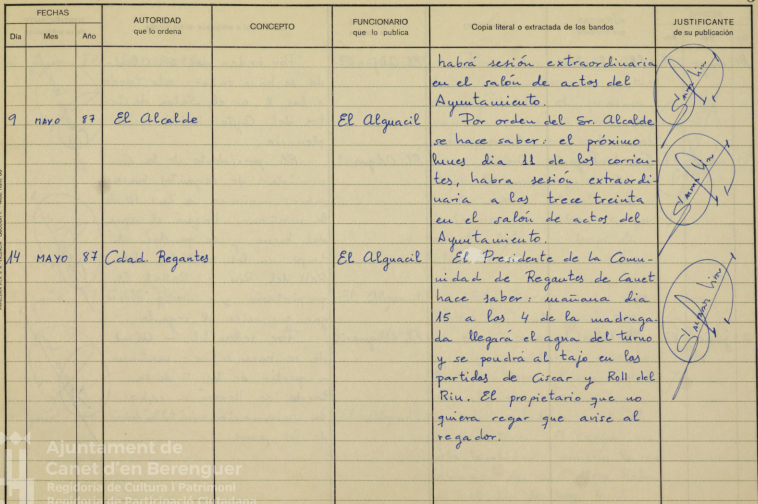 FECHAS
Dia Mes Año
AUTORIDAD
que lo ordena
CONCEPTO
FUNCIONARIO
que lo publica
Copia literal o extractada de los bandos
JUSTIFICANTE
de su publicación
habrá sesión extraordinaria
en el salón de actos del
Ayuntamiento.
9 MAYO 87 El Alcalde El Alguacil Por orden del Sr. Alcalde
se hace saber: el próximo
lunes dia 11 de los corrien-
tes, habra sesión extraordi-
naria a las trece treinta
en el salón de actos del
Ayuntamiento.
14 MAYO 87 Cdad. Regantes El Alguacil El Presidente de la Comu-
nidad de Regantes de Canet
hace saber: mañana dia
15 a las 4 de la madruga-
da llegará el agua del turno
y se pondrá al tajo en las
partidas de Ciscar y Roll del
Riu. El propietario que no
quiera regar que avise al
regador.
Ajuntament de
Canet d'en Berenguer
Regidoria de Cultura i Patrimoni
Regidoria de Participació Ciutadana